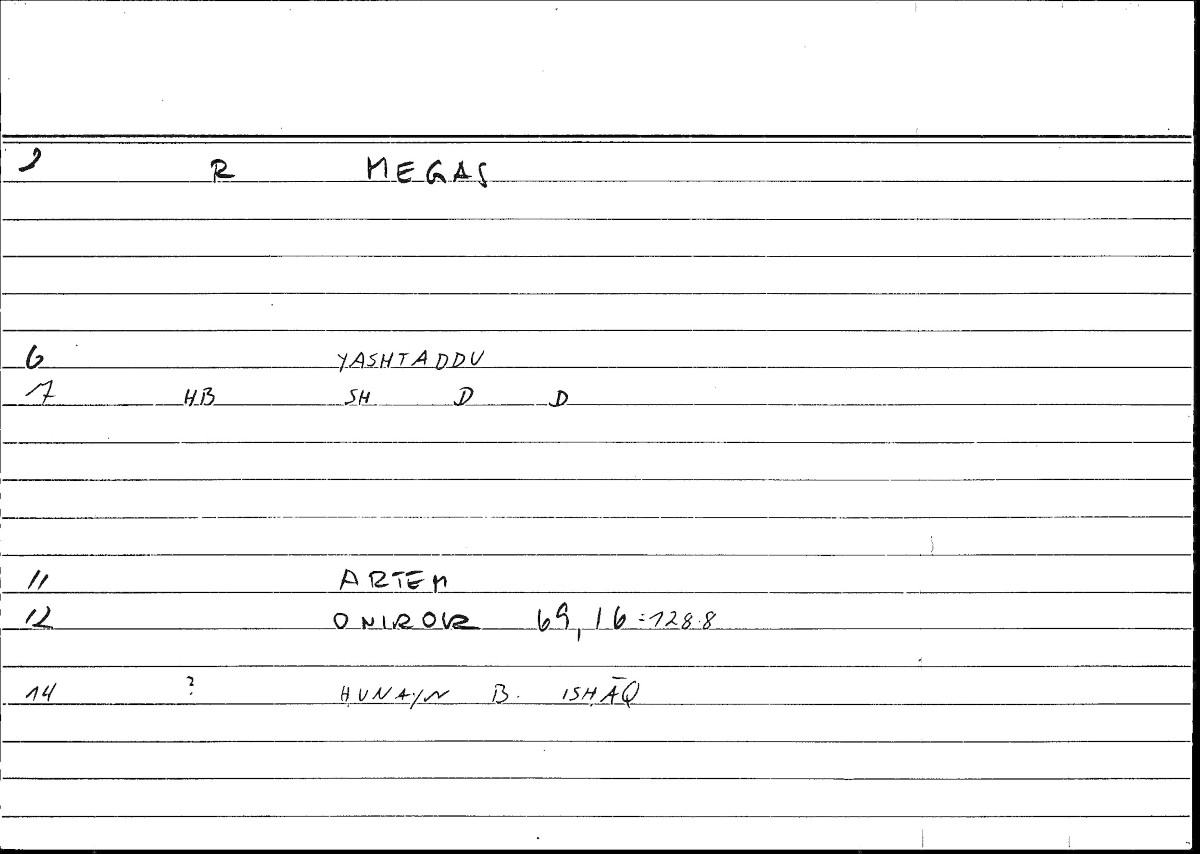 2 R MEGAS
6 YASHTADDU
7 HB SH D D
11 ARTEM
12 ONIROK 69,16=128.8
14 ? ḤUNAYN B. ISḤĀQ